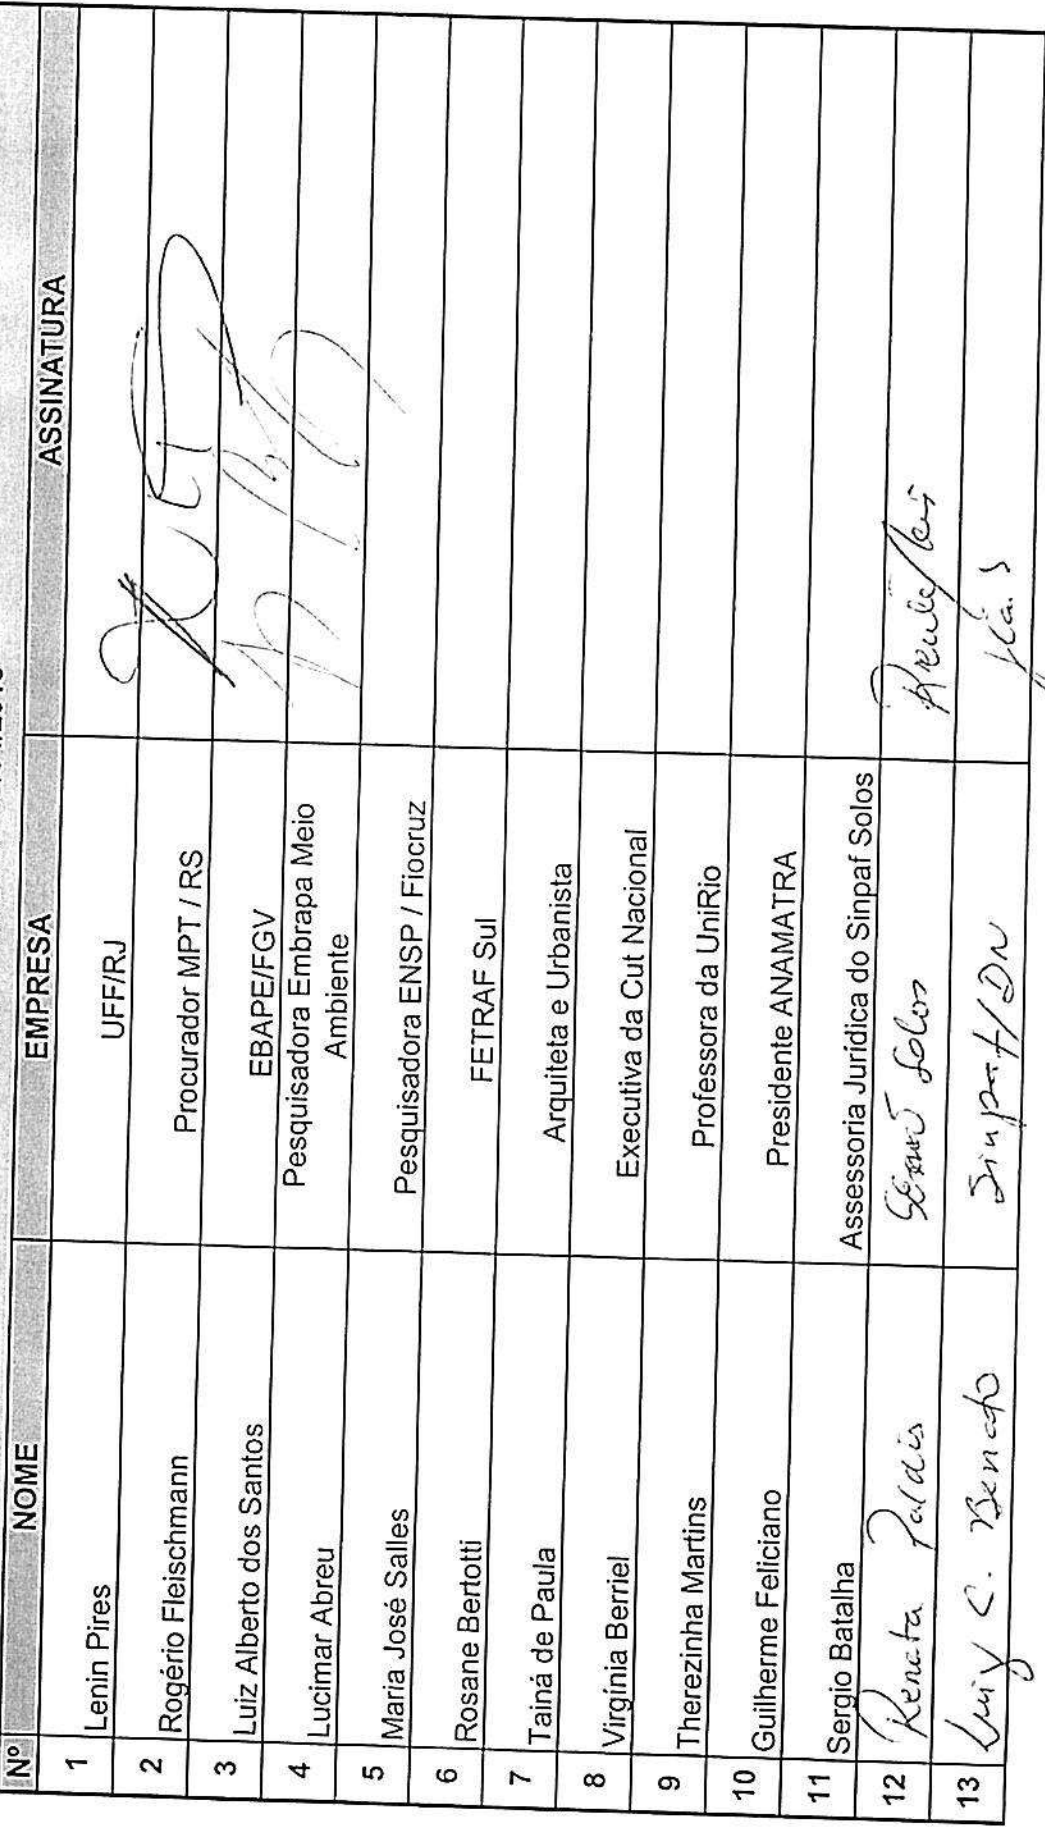 Nº NOME EMPRESA ASSINATURA
1 Lenin Pires UFF/RJ
2 Rogério Fleischmann Procurador MPT / RS
3 Luiz Alberto dos Santos EBAPE/FGV
4 Lucimar Abreu Pesquisadora Embrapa Meio
Ambiente
5 Maria José Salles Pesquisadora ENSP / Fiocruz
6 Rosane Bertotti FETRAF Sul
7 Tainá de Paula Arquiteta e Urbanista
8 Virgínia Berriel Executiva da Cut Nacional
9 Therezinha Martins Professora da UniRio
10 Guilherme Feliciano Presidente ANAMATRA
11 Sergio Batalha Assessoria Jurídica do Sinpaf Solos
12 Renata Solos
13 Luiz C. Sinpaf/DN